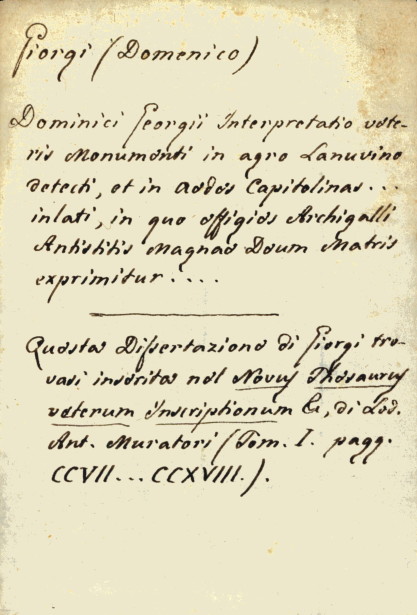 Giorgi (Domenico)
Dominici Georgii Interpretatio vete-
ris Monumenti in agro Lanuvino
detecti, et in Aedes Capitolinas ...
inlati, in quo effigies Archigalli
Antistitis Magnae Deum Matris
exprimitur ....
Questa Dissertazione di Giorgi tro-
vasi inserita nel Novus Thesaurus
veterum Inscriptionum &, di Lod.
Ant. Muratori (Tom. I. pagg.
CCVII ... CCXVIII.).